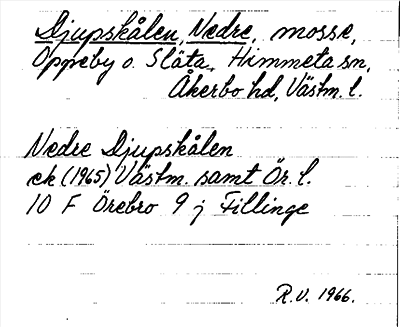 Djupskålen, Nedre, mosse,
Oppeby o. Släta, Himmeta sn,
Åkerbo hd, Västm. l.
Nedre Djupskålen
ek (1965) Västm. samt Ör. l.
10 F Örebro 9 j Fillinge
R.V. 1966.